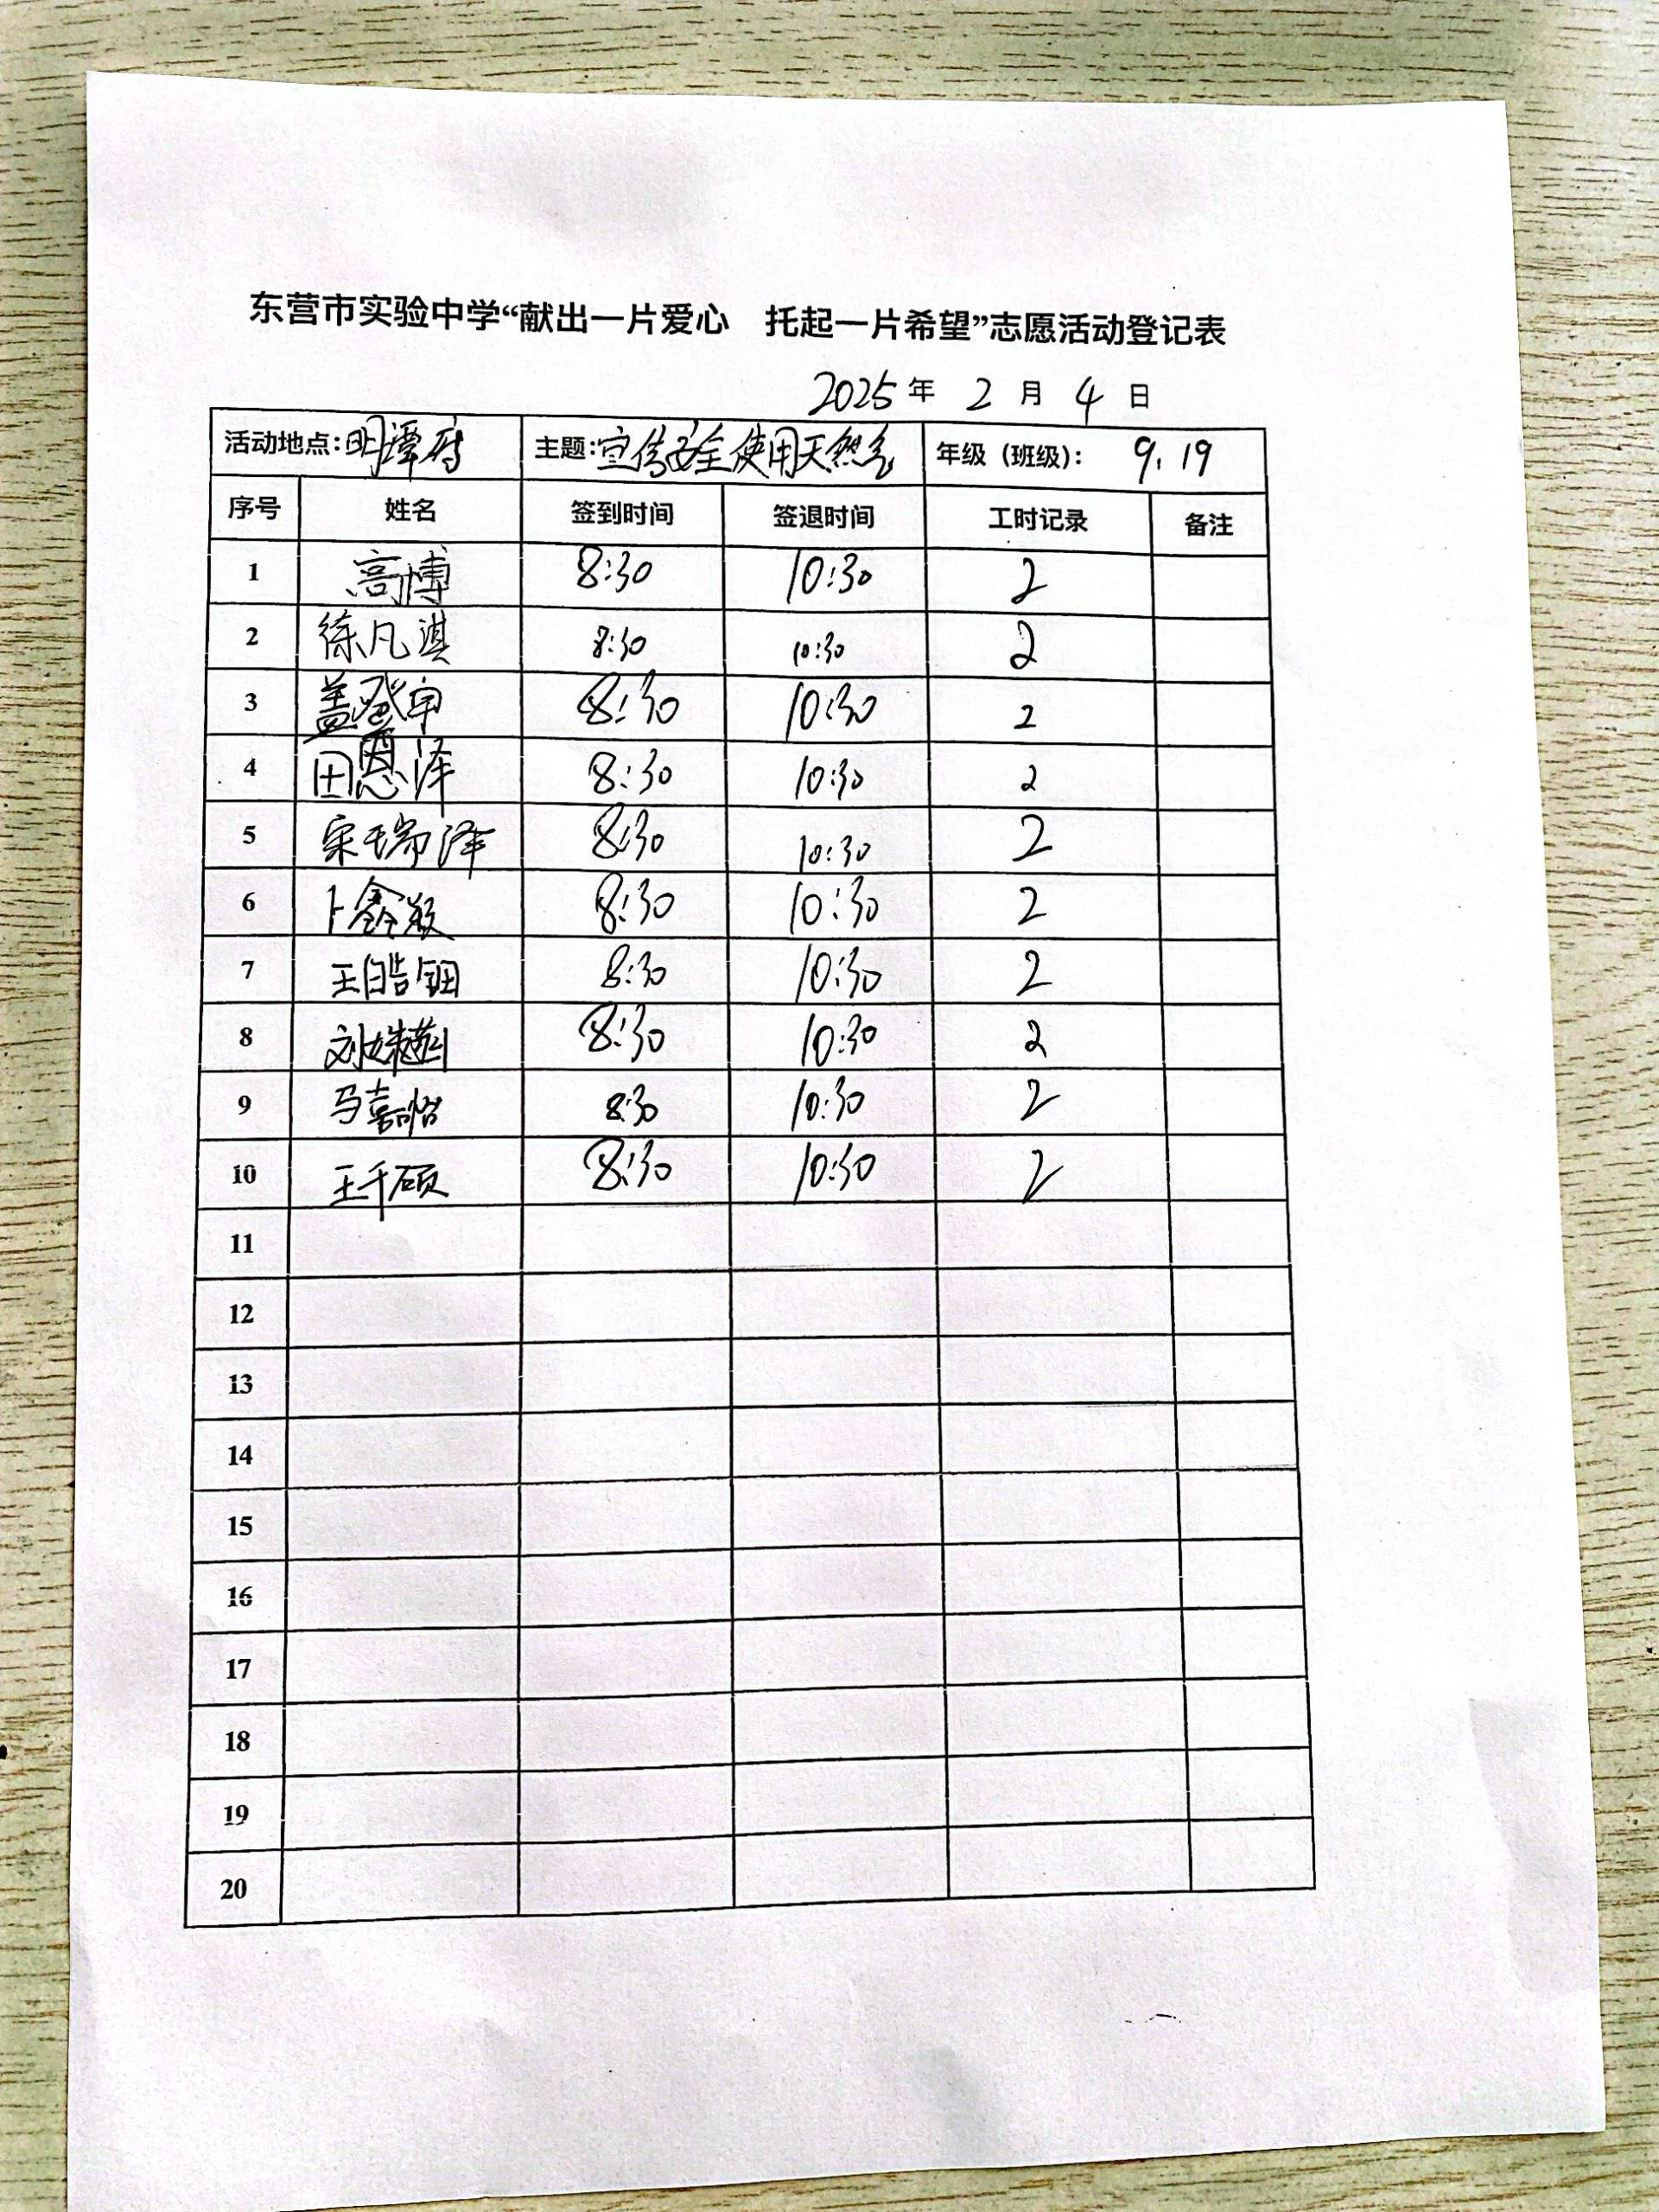 东营市实验中学“献出一片爱心 托起一片希望”志愿活动登记表
2025 年 2 月 4 日
活动地点:明潭府 主题:宣传安全使用天然气 年级（班级）: 9.19
序号 姓名 签到时间 签退时间 工时记录 备注
1 高博 8:30 10:30 2
2 徐凡淇 8:30 10:30 2
3 盖登申 8:30 10:30 2
4 田恩泽 8:30 10:30 2
5 宋瑞泽 8:30 10:30 2
6 卜鑫 8:30 10:30 2
7 王皓钿 8:30 10:30 2
8 刘姝 8:30 10:30 2
9 马嘉怡 8:30 10:30 2
10 王千硕 8:30 10:30 2
11
12
13
14
15
16
17
18
19
20